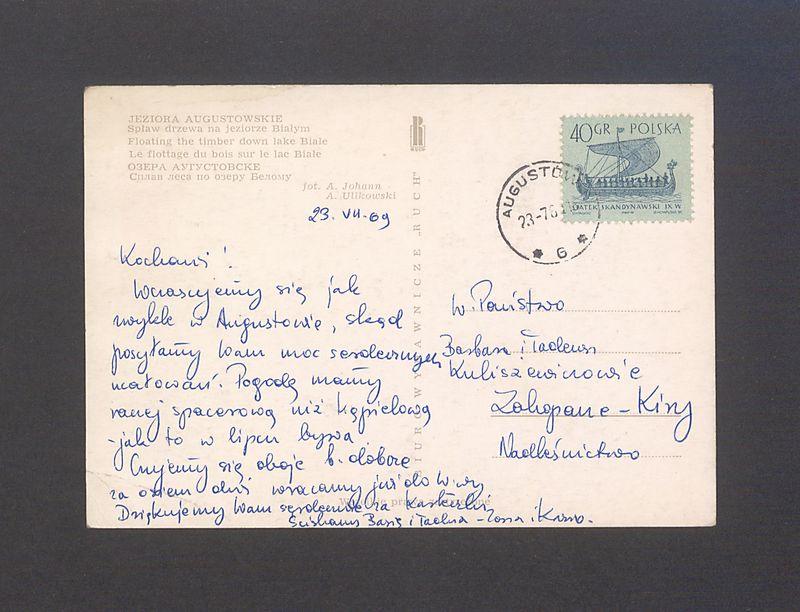 JEZIORA AUGUSTOWSKIE
Spław drzewa na jeziorze Białym
Floating the timber down lake Białe
Le flottage du bois sur le lac Białe
ОЗЕРА АУГУСТОВСКЕ
Сплав леса по озеру Белому
fot. A. Johann
A. Ulikowski
RUCH
40GR POLSKA
STATEK SKANDYNAWSKI IX W
AUGUSTÓW
23-7
6
BIURO WYDAWNICZE „RUCH”
23. VII. 69
Kochani!
Wczasujemy się jak
zwykle w Augustowie, skąd
posyłamy Wam moc serdecznych
całowań. Pogodę mamy
raczej spacerową niż kąpielową
- jak to w lipcu bywa.
Czujemy się oboje b. dobrze
za osiem dni wracamy już do
Dziękujemy Wam serdecznie za
Ściskamy Basię i Tadzia -
W. Państwo
Barbara i Tadeusz
Kuliszewiczowie
Zakopane - Kiry
Nadleśnictwo